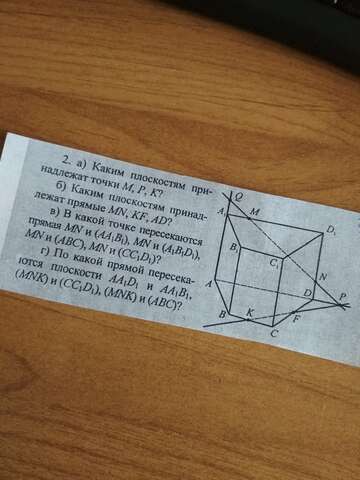 2. а) Каким плоскостям при-
надлежат точки M, P, K?
б) Каким плоскостям принад-
лежат прямые MN, KF, AD?
в) В какой точке пересекаются
прямая MN и (AA₁B₁), MN и (A₁B₁D₁),
MN и (ABC), MN и (CC₁D₁)?
г) По какой прямой пересека-
ются плоскости AA₁D₁ и AA₁B₁,
(MNK) и (CC₁D₁), (MNK) и (ABC)?
Q
A₁ M
D₁
B₁
C₁
A
N
D P
B K F
C